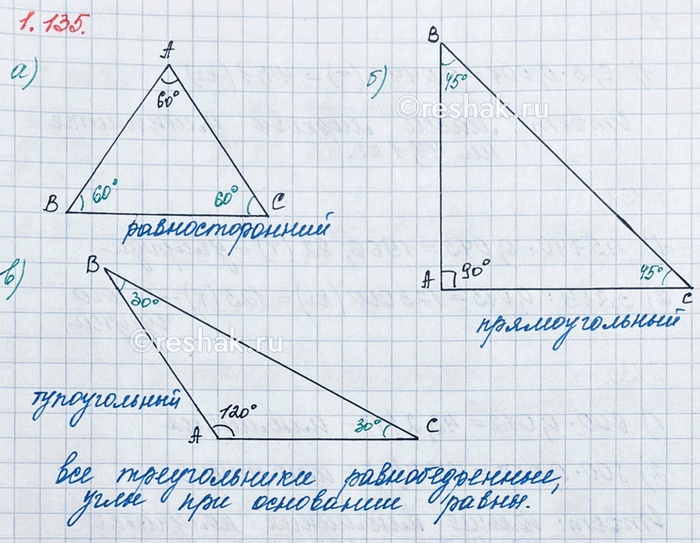 1.135.
а)
A
60°
B 60° 60° C
равносторонний
б)
B
45°
A 90° 45° C
прямоугольный
в)
B
30°
тупоугольный
A 120° 30° C
©reshak.ru
©reshak.ru
все треугольники равнобедренные,
углы при основании равны.